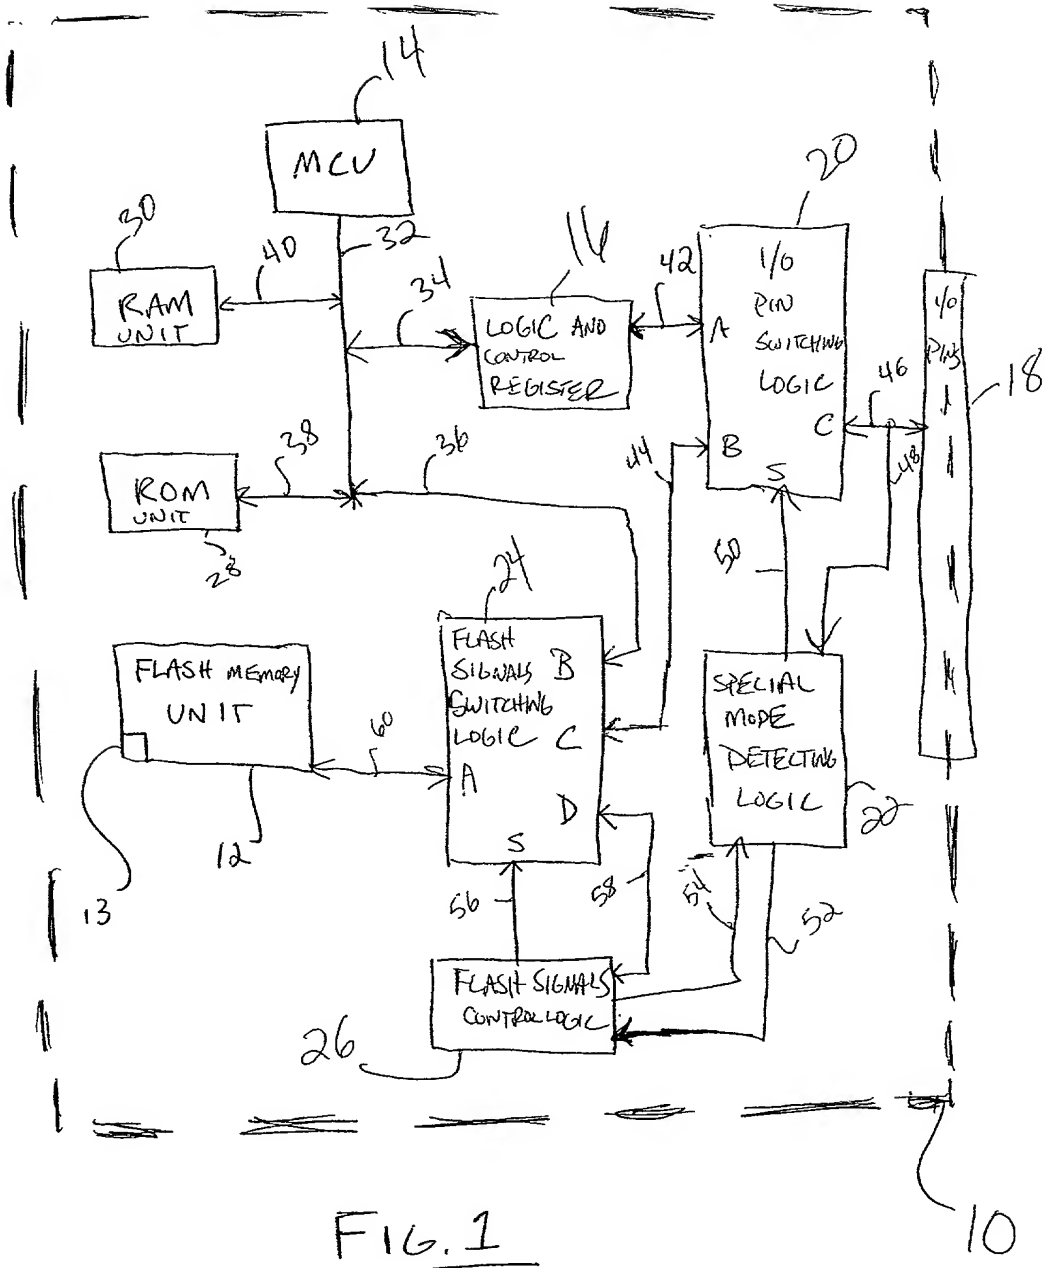 14
MCU
20
30
40
32
34
16
42
RAM
UNIT
LOGIC AND
CONTROL
REGISTER
I/O
PIN
SWITCHING
LOGIC
A
B
C
S
46
48
I/O
PINS
18
38
36
44
ROM
UNIT
28
50
24
FLASH
SIGNALS
SWITCHING
LOGIC
B
C
A
D
S
FLASH MEMORY
UNIT
60
12
13
SPECIAL
MODE
DETECTING
LOGIC
22
56
58
54
52
FLASH SIGNALS
CONTROL LOGIC
26
10
FIG. 1